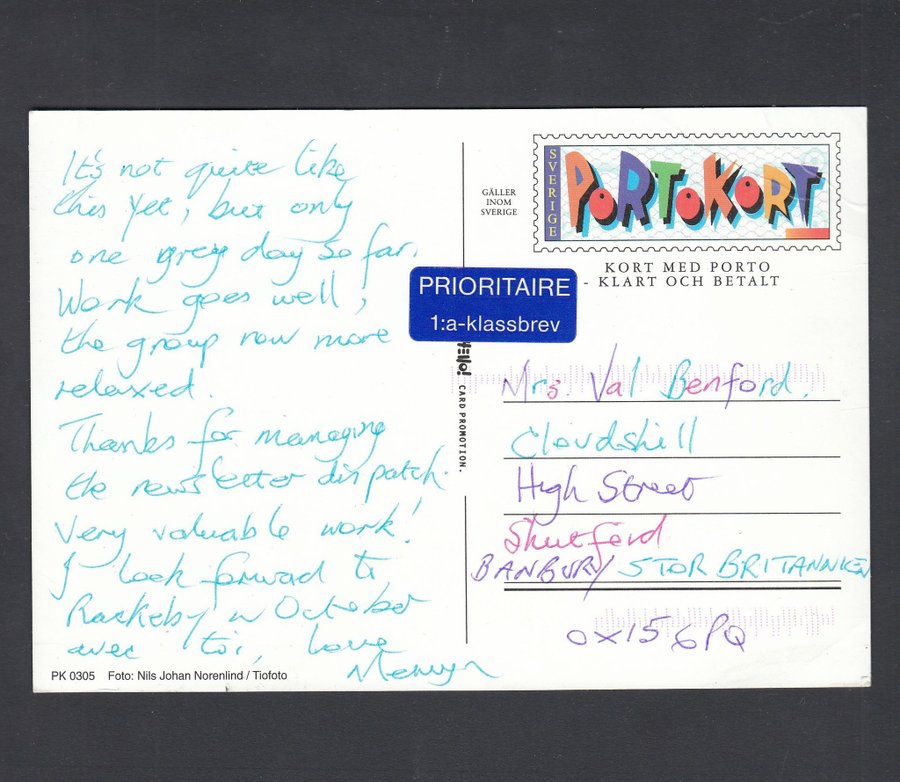 It's not quite like
this yet, but only
one grey day so far.
Work goes well,
the group now more
relaxed.
Thanks for managing
the newsletter dispatch.
Very valuable work!
I look forward to
Rackeby in October
avec toi, love
Mervyn
PK 0305 Foto: Nils Johan Norenlind / Tiofoto
GÄLLER
INOM
SVERIGE
SVERIGE
PORTOKORT
KORT MED PORTO
- KLART OCH BETALT
PRIORITAIRE
1:a-klassbrev
CARD PROMOTION.
Mrs. Val Benford.
Cloudshill
High Street
Shutford
BANBURY STOR BRITANNIEN
OX15 6PQ